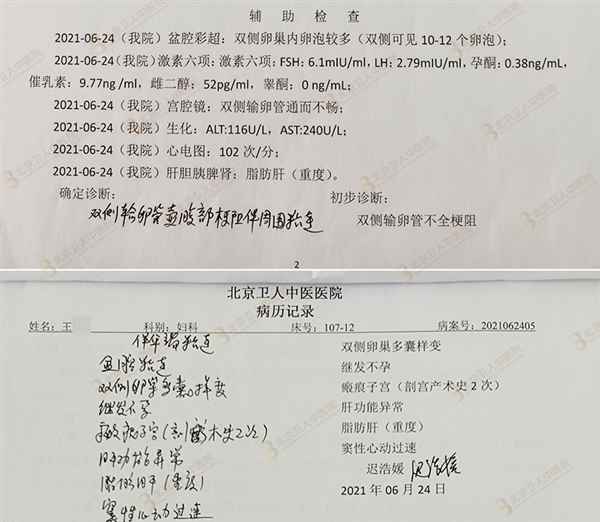 辅助检查
2021-06-24（我院）盆腔彩超：双侧卵巢内卵泡较多（双侧可见10-12个卵泡）；
2021-06-24（我院）激素六项：激素六项：FSH：6.1mIU/ml，LH：2.79mIU/ml，孕酮：0.38ng/mL，
催乳素：9.77ng/ml，雌二醇：52pg/ml，睾酮：0 ng/mL；
2021-06-24（我院）宫腔镜：双侧输卵管通而不畅；
2021-06-24（我院）生化：ALT:116U/L，AST:240U/L；
2021-06-24（我院）心电图：102 次/分；
2021-06-24（我院）肝胆胰脾肾：脂肪肝（重度）。
确定诊断： 初步诊断：
双侧输卵管壶腹部梗阻伴周围粘连 双侧输卵管不全梗阻
2
北京卫人中医医院
病历记录
姓名：王 科别：妇科 床号：107-12 病案号：2021062405
伴伞端粘连 双侧卵巢多囊样变
盆腔粘连 继发不孕
双侧卵巢多囊样变 瘢痕子宫（剖宫产术史 2 次）
继发不孕 肝功能异常
瘢痕子宫（剖宫产术史2次） 脂肪肝（重度）
肝功能异常 窦性心动过速
脂肪肝（重度） 迟浩媛 迟浩媛
窦性心动过速 2021 年 06 月 24 日
北京卫人中医院